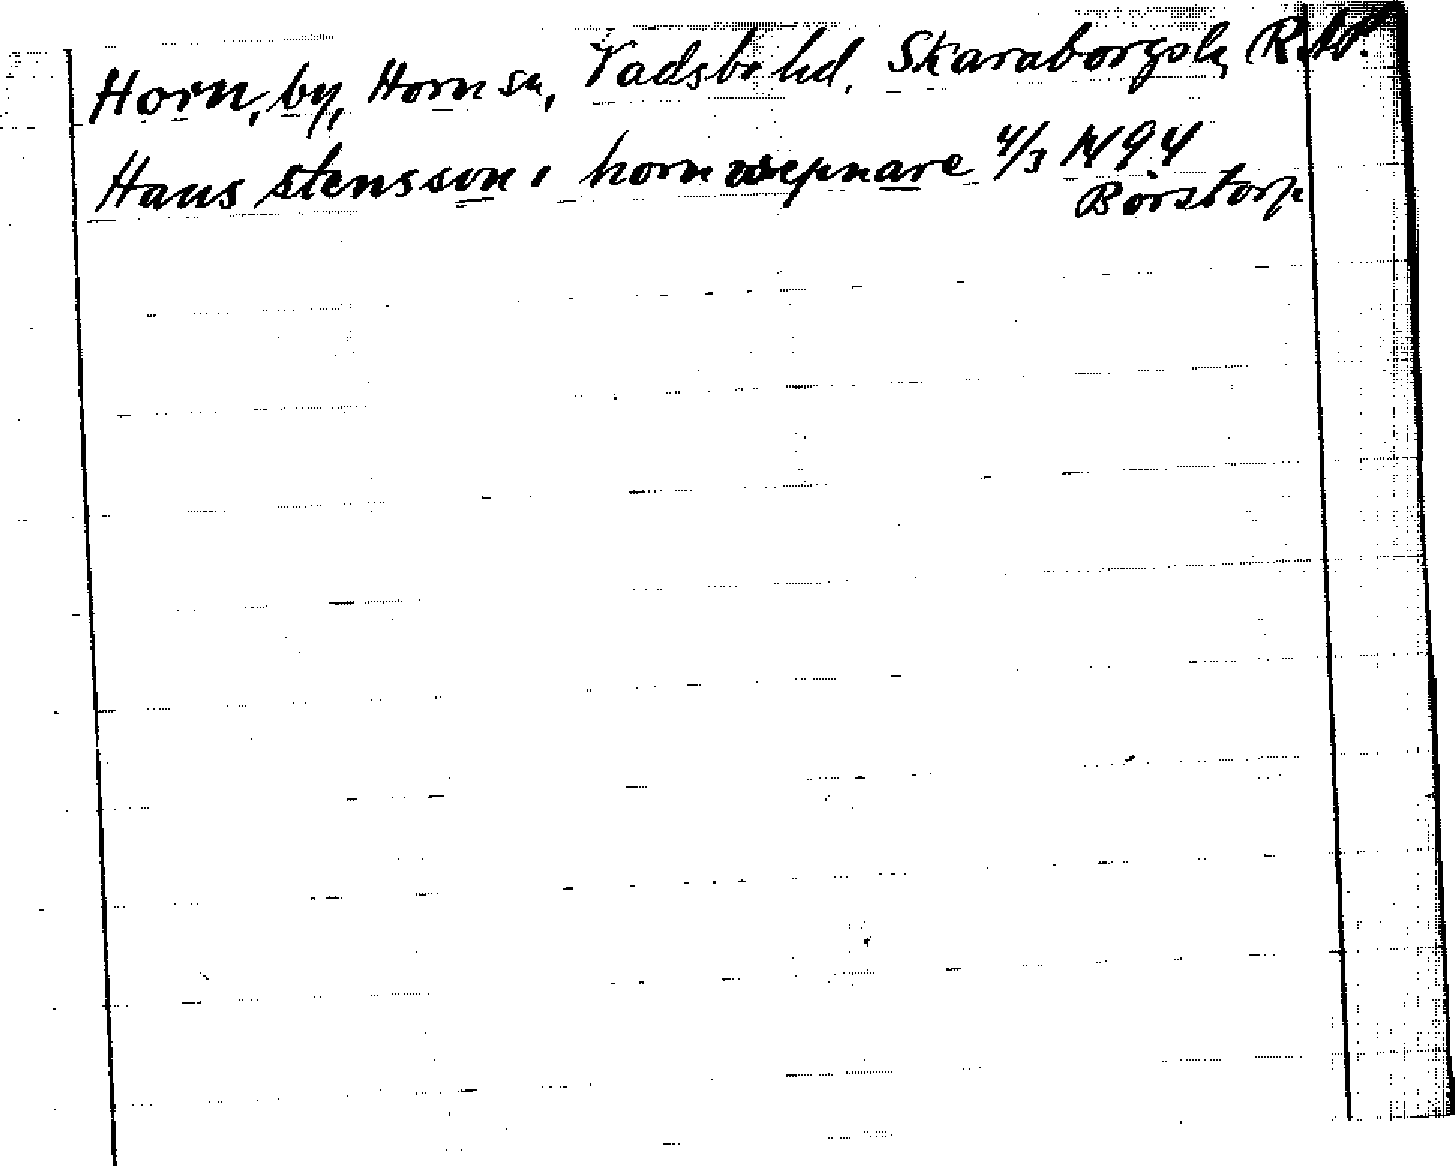 Horn, by, Horn sn, Vadsbo hd, Skaraborgs l,
Hans stensson i horn wepnare 4/3 1494
Börstorp